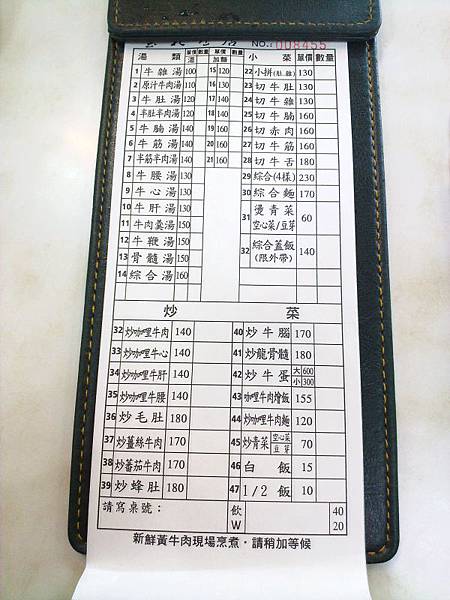 NO.: 008455
湯類 單價 數量 單價 數量 小菜 單價 數量
湯 加麵
1 牛雜湯 100 15 120 22 小拼(肚.雜) 130
2 原汁牛肉湯 110 16 130 23 切牛肚 130
3 牛肚湯 120 17 140 24 切牛雜 130
4 半肚半肉湯 120 18 140 25 切牛腩 160
5 牛腩湯 140 19 160 26 切赤肉 160
6 牛筋湯 140 20 160 27 切牛筋 160
7 半筋半肉湯 140 21 160 28 切牛舌 180
8 牛腰湯 130 29 綜合(4樣) 230
9 牛心湯 130 30 綜合麵 170
10 牛肝湯 130 31 燙青菜 空心菜/豆芽 60
11 牛肉羹湯 150
12 牛鞭湯 150 32 綜合蓋飯 (限外帶) 140
13 骨髓湯 150
14 綜合湯 160
炒菜
32 炒咖哩牛肉 140 40 炒牛腦 170
33 炒咖哩牛心 140 41 炒龍骨髓 180
34 炒咖哩牛肝 140 42 炒牛蛋 大 600 小 300
35 炒咖哩牛腰 140 43 咖哩牛肉燴飯 155
36 炒毛肚 180 44 炒咖哩牛肉麵 120
37 炒薑絲牛肉 170 45 炒青菜 空心菜 豆芽 70
38 炒蕃茄牛肉 170 46 白飯 15
39 炒蜂肚 180 47 1/2飯 10
請寫桌號： 飲 40
W 20
新鮮黃牛肉現場烹煮，請稍加等候